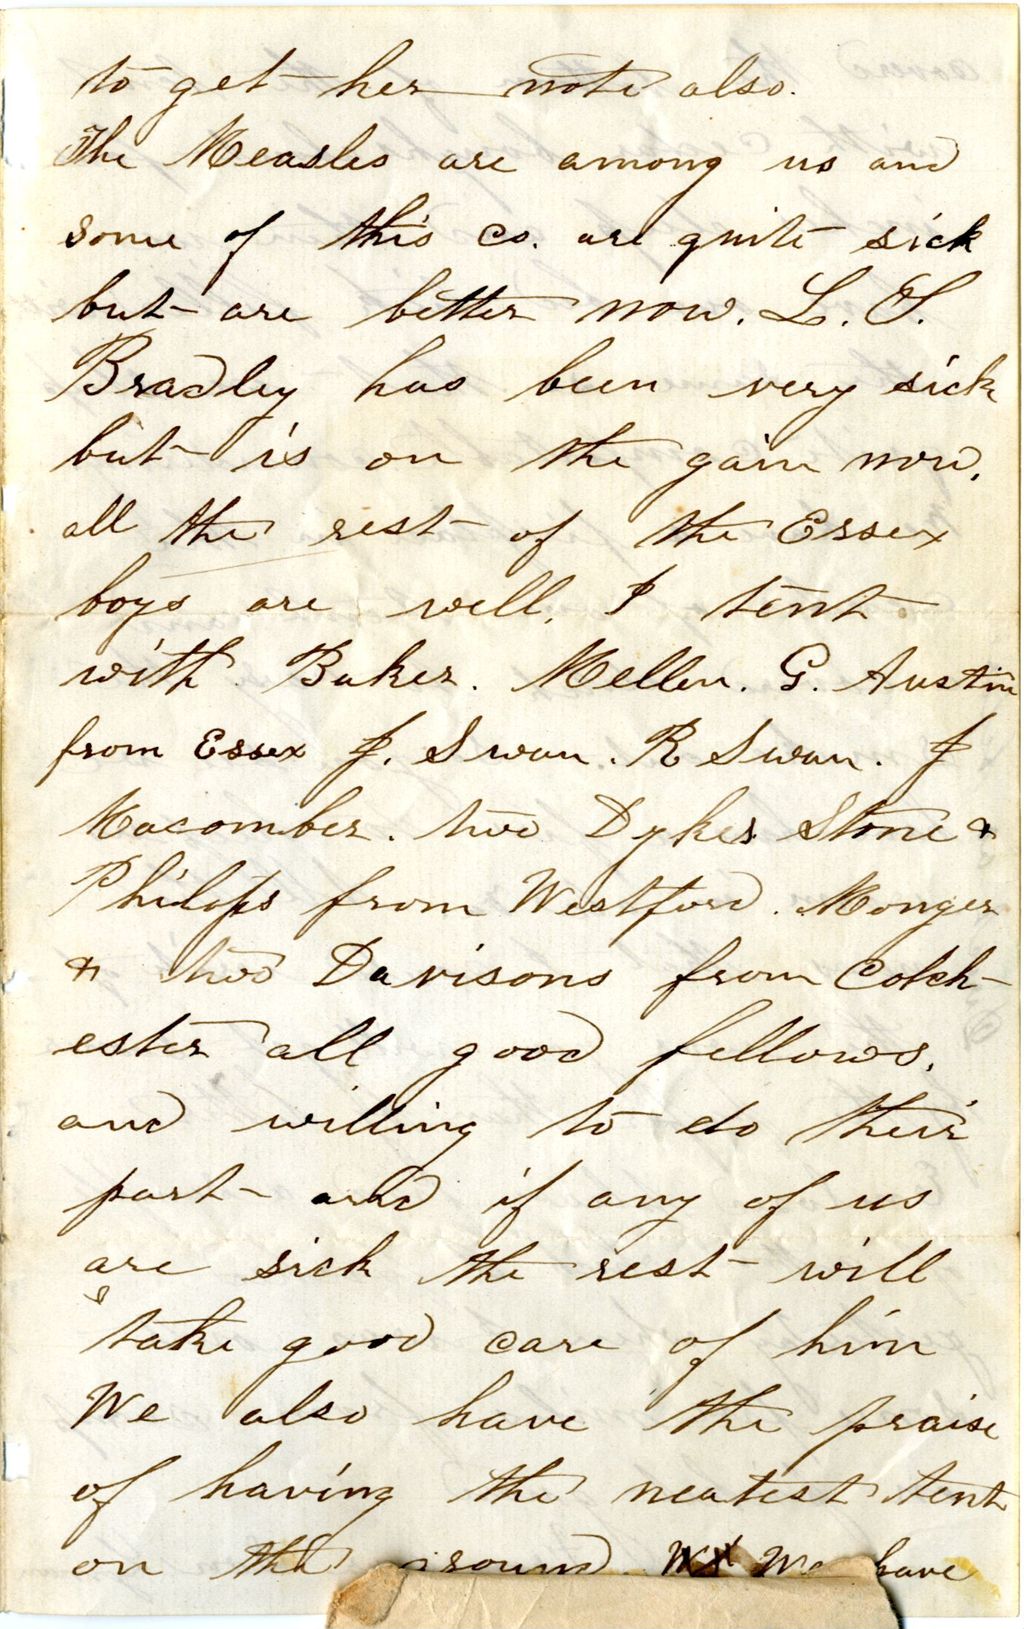 to get her note also.
The Measles are among us and
some of this co. are quite sick
but are better now. L. S.
Bradley has been very sick
but is on the gain now.
all the rest of the Essex
boys are well. I tent
with Baker. Mellen. G. Austin
from Essex J. Swan. R Swan. J
Macomber. two Dykes Stone &
Philops from Westford. Monger
& two Davisons from Colch-
ester all good fellows.
and willing to do their
part and if any of us
are sick the rest will
take good care of him
We also have the praise
of having the neatest tent
on the ground. We have